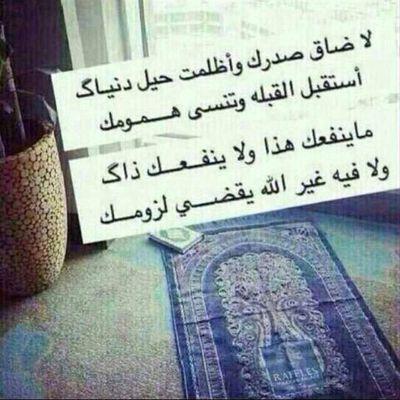 لا ضاق صدرك وأظلمت حيل دنياگ
أستقبل القبله وتنسى همـــومك
ماينفعك هذا ولا ينفـــعـــك ذاگ
ولا فيه غير الله يقضـــي لزومــك
RAFFLES